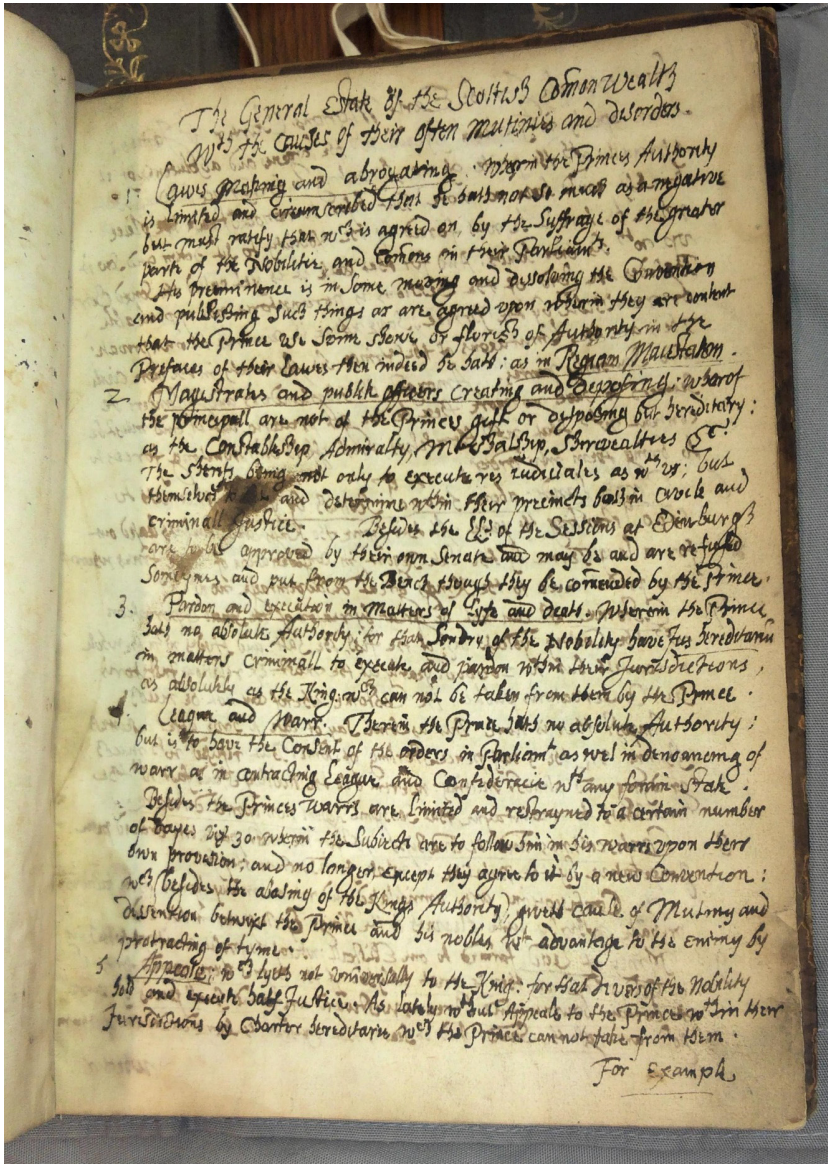 The General Estate of the Scottish Comon Wealth
Wth the Causes of their often Mutinies and disorders.
1. Lawes making and abrogating. Wherin the Princes Authority
is limited and circumscribed that he hath not so much as a negative
but must ratify that wch is agreed on by the Suffrage of the greater
parte of the Nobilitie and Comons in their Parliamts.
His preeminence is in Some moving and dissolving the Convention
and publishing such things as are agreed upon wherin they are content
that the Prince use Some shewe or florish of Authority in the
Prefaces of their Lawes then indeed he hath: as in Regiam Maiestatem.
2. Magistrates and publik officers Creating and Deposing: wherof
the principall are not of the Princes gift or disposing but hereditary:
as the Constableship Admiralty, Marshalship, Shirevealties &c:
The Sherifs being not only to execute res iudiciales as wth us; but
themselves to and determine wthin their precincts both in Civile and
criminall Justice. Besides the LLs of the Sessions at Edenburgh
are to be approved by their own Senate and may be and are refused
Somtymes and put from the Bench though they be comended by the Prince.
3. Pardon and execution in Matters of Lyfe and death. Wherein the Prince
hath no absolute Authority: for that Sondry of the Nobility have Jus hereditariu
in matters Criminall to execute and pardon wthin their Jurisdictions,
as absolutely as the King. wch can not be taken from them by the Prince.
4. League and Warr. Therein the Prince hath no absolute Authority:
but is to have the Consent of the orders in Parliamt as wel in denouncing of
warr as in contracting League and Confideracie wth any forain State.
Besides the Princes Warrs are Limited and restrayned to a certain number
of dayes viz 30 wherin the Subiects are to follow him in his warrs upon their
own provision: and no longer except they agree to it by a new Convention:
wch (besides the abasing of the Kings Authority) giveth cause of Mutiny and
dissention betwixt the Prince and his nobles wth advantage to the enemy by
protracting of tyme.
5 Appeale: wch lyeth not universally to the King: for that divers of the Nobility
hold and execute hath Justice. As lately wthout Appeals to the Princes wthin their
Jurisdictions by Charter hereditarie wch the Prince cannot take from them.
For Example